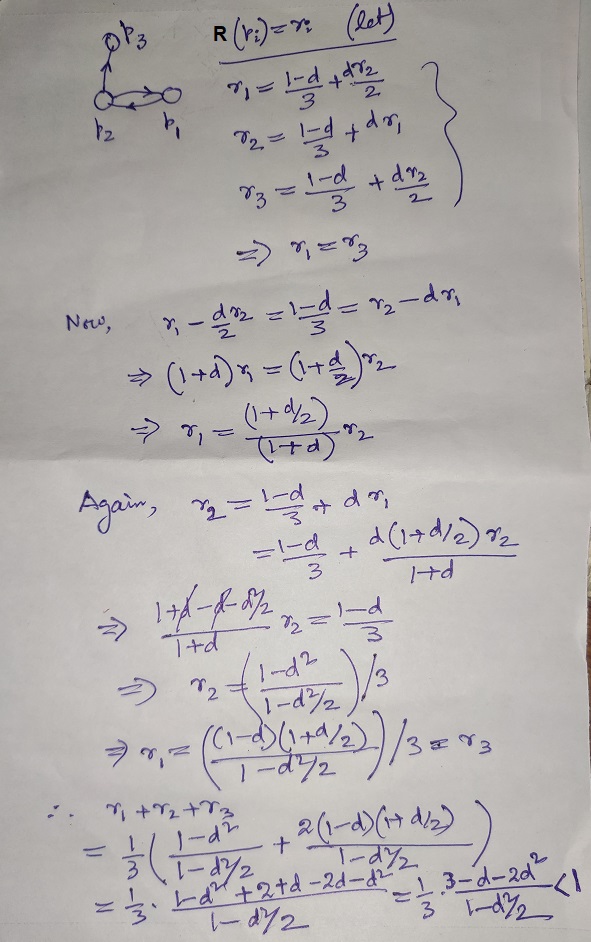 p3
p2 p1
R(pi) = ri (let)
r1 = (1-d)/3 + dr2/2
r2 = (1-d)/3 + dr1
r3 = (1-d)/3 + dr2/2
⇒ r1 = r3
Now, r1 - d/2 r2 = (1-d)/3 = r2 - dr1
⇒ (1+d)r1 = (1+d/2)r2
⇒ r1 = (1+d/2)/(1+d) r2
Again, r2 = (1-d)/3 + dr1
= (1-d)/3 + d(1+d/2)r2/(1+d)
⇒ (1+d-d-d²/2)/(1+d) r2 = (1-d)/3
⇒ r2 = ((1-d²)/(1-d²/2))/3
⇒ r1 = ((1-d)(1+d/2)/(1-d²/2))/3 = r3
∴ r1+r2+r3
= 1/3 ((1-d²)/(1-d²/2) + 2(1-d)(1+d/2)/(1-d²/2))
= 1/3 · (1-d²+2+d-2d-d²)/(1-d²/2) = 1/3 · (3-d-2d²)/(1-d²/2) < 1